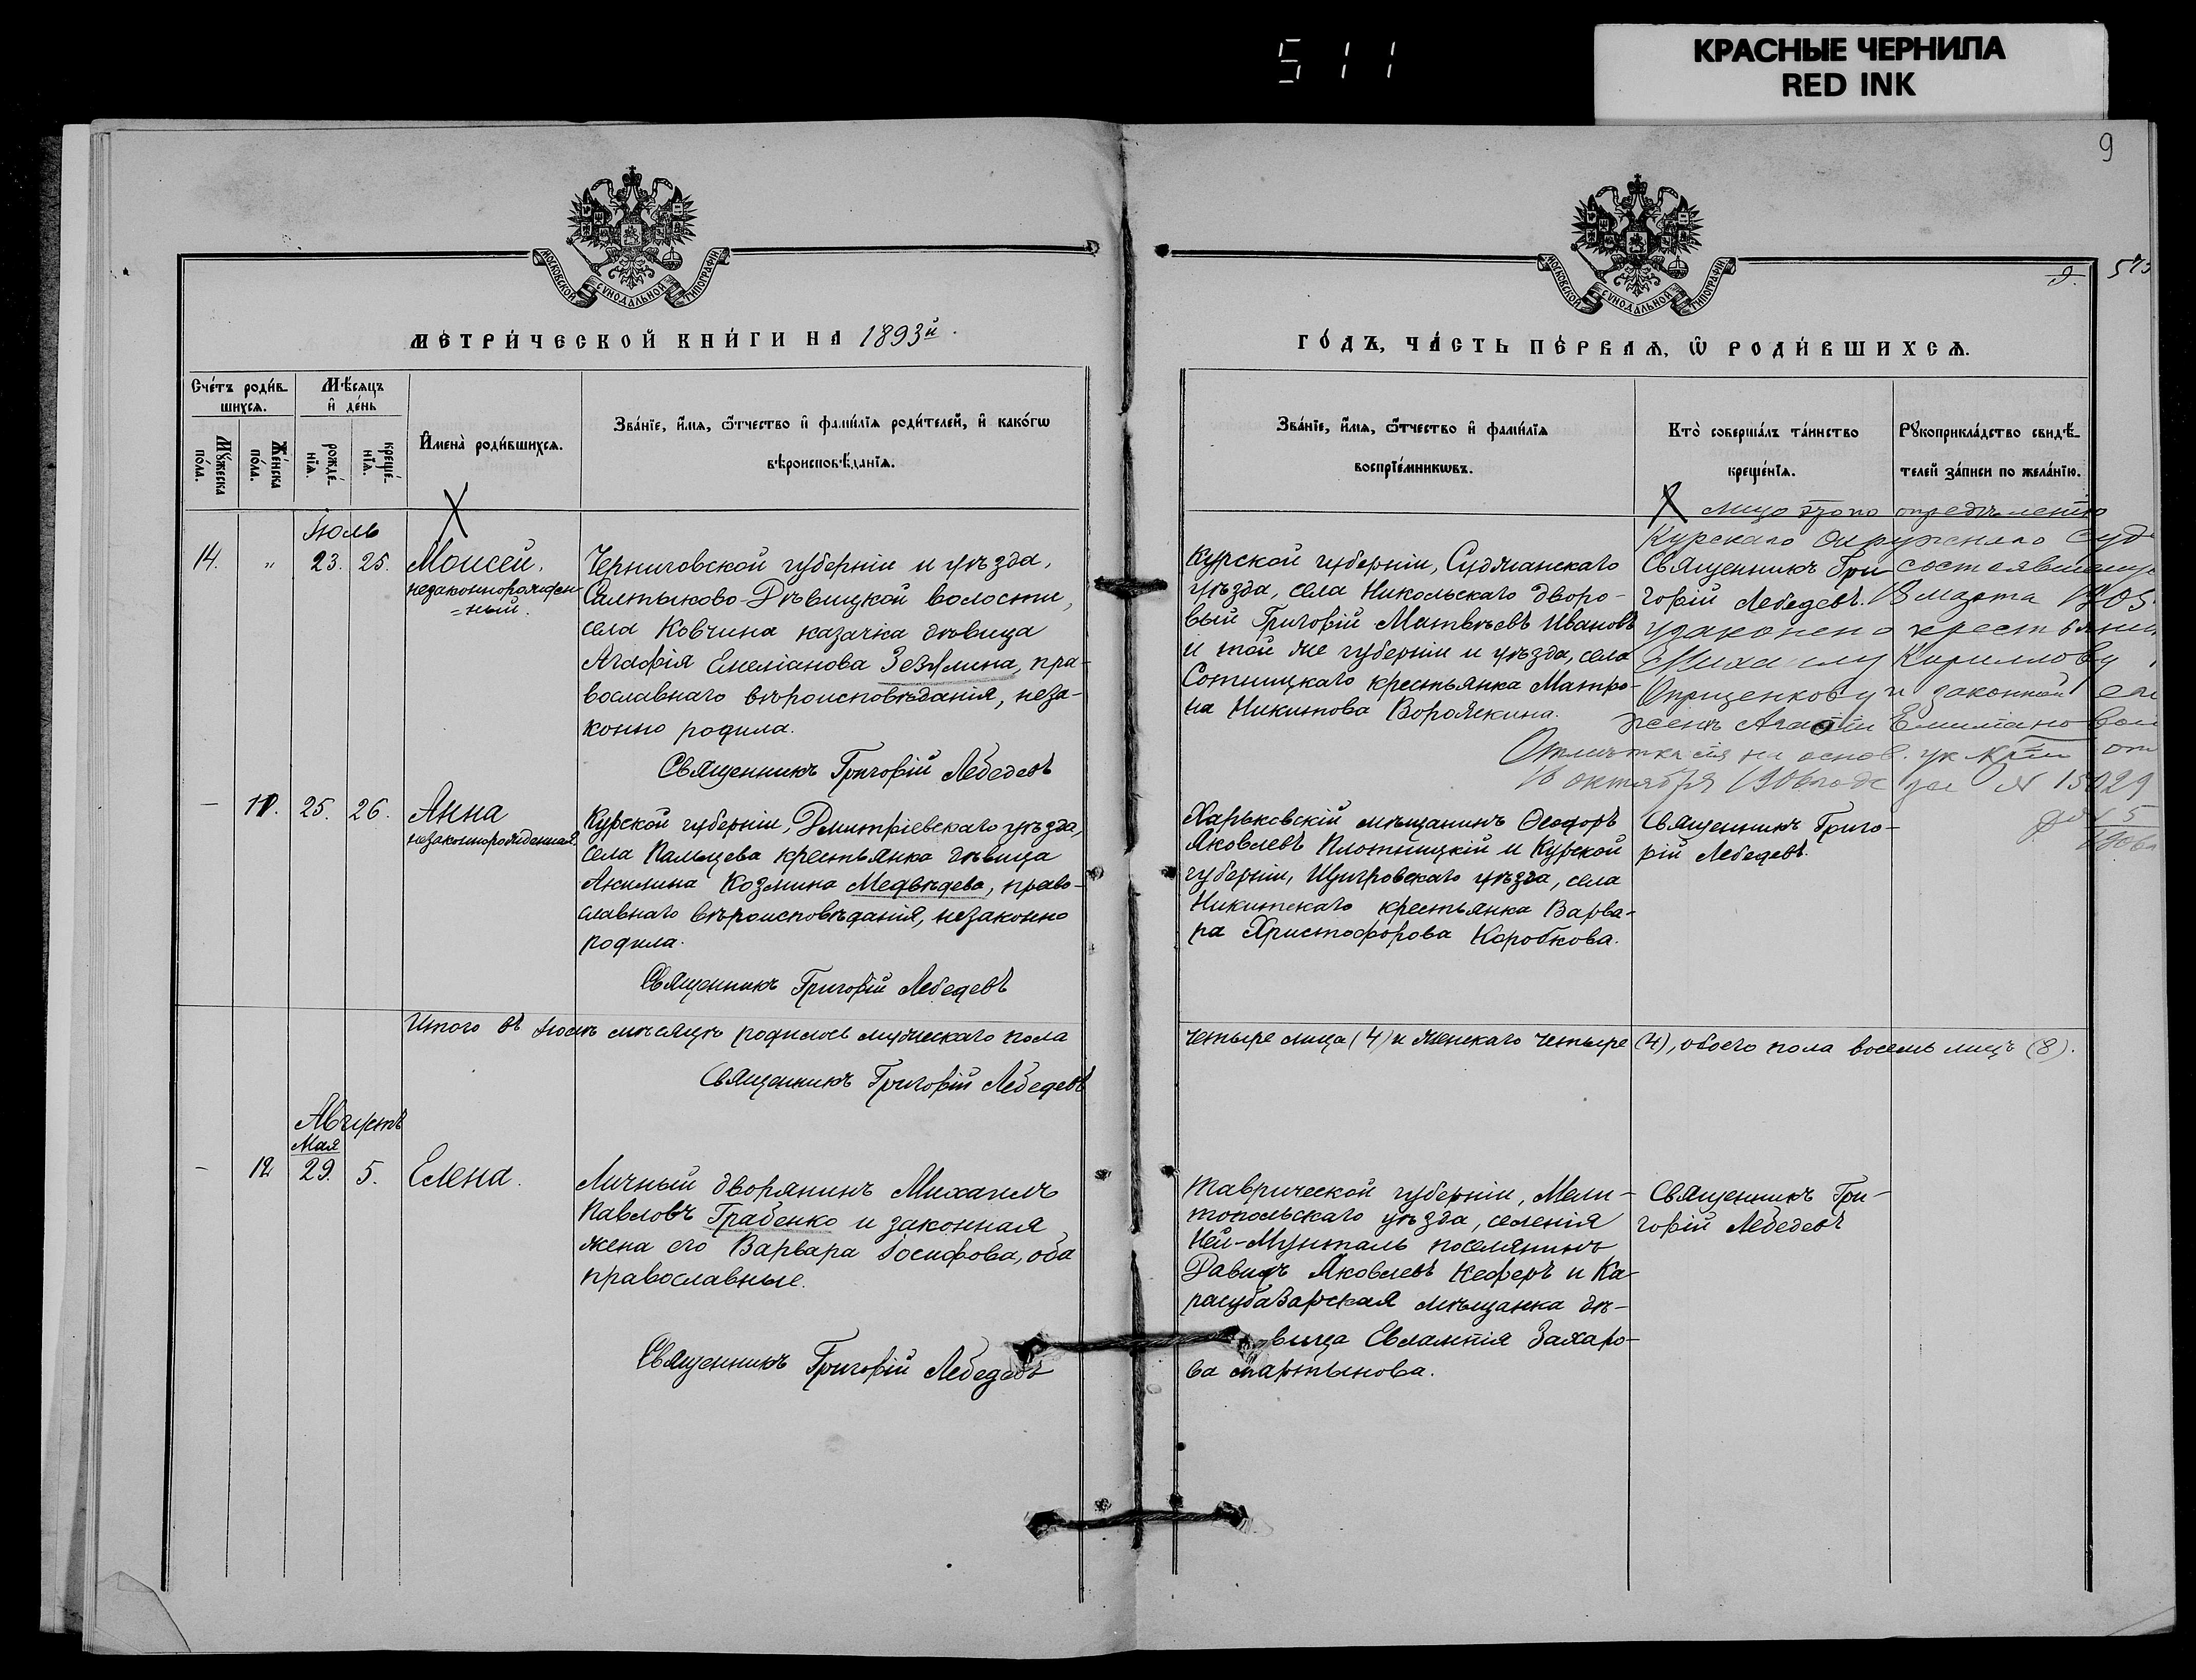 511
КРАСНЫЕ ЧЕРНИЛА
RED INK
9
9.
573
МОСКОВСКОЙ СѴНОДАЛЬНОЙ ТИПОГРАФІИ
МОСКОВСКОЙ СѴНОДАЛЬНОЙ ТИПОГРАФІИ
МЕТРИ́ЧЕСКОЙ КНИ́ГИ НА 1893й.
ГО́ДЪ, ЧА́СТЬ ПЕ́РВАѦ, Ѡ҆ РОДИ́ВШИХСѦ.
Сче́тъ роди́в-
шихсѧ.
Мѣ́сѧцъ
и҆ де́нь
Мꙋ́жеска по́ла.
Же́нска по́ла.
рожде́-
нїѧ.
креще́-
нїѧ.
И҆мена̀ роди́вшихсѧ.
Зва́нїе, и҆́мѧ, ѻ҆́тчество и҆ фами́лїѧ роди́телей, и҆ како́гѡ
вѣроисповѣ́данїѧ.
Зва́нїе, и҆́мѧ, ѻ҆́тчество и҆ фами́лїѧ
воспрїе́мникѡвъ.
Кто̀ соверша́лъ та́инство
креще́нїѧ.
Рꙋкоприкла́дство свидѣ́-
телей за́писи по жела́нїю.
Іюль
14. „ 23. 25. Моисей,
незаконнорожден-
=ный.
Черниговской губерніи и уѣзда,
Салтыково-Дѣвицкой волости,
села Ковчина казачка дѣвица
Агафія Емеліанова Зезюлина, пра-
вославнаго вѣроисповѣданія, неза-
конно родила.
Священникъ Григорій Лебедевъ
Курской губерніи, Суджанскаго
уѣзда, села Никольскаго дворо-
вый Григорій Матвѣевъ Ивановъ
и той же губерніи и уѣзда, села
Сотницкаго крестьянка Матро-
на Никитова Ворожкина.
Священникъ Гри-
горій Лебедевъ.
X Лицо это по опредѣленію
Курскаго Окружнаго Суда
состоявшемуся
18 марта 1905
узаконено крестьянину
Михаилу Кириллову
Онященкову и законной его
женѣ Агафіи Емиліановой
Отмѣтка сія на основ. ук. от
16 октября 1906 года за № 15029
— 11. 25. 26. Анна
незаконнорожденная.
Курской губерніи, Дмитріевскаго уѣзда,
села Пальцева крестьянка дѣвица
Акилина Козмина Медвѣдева, право-
славнаго вѣроисповѣданія, незаконно
родила.
Священникъ Григорій Лебедевъ
Харьковскій мѣщанинъ Ѳеодоръ
Яковлевъ Плотницкій и Курской
губерніи, Щигровскаго уѣзда, села
Никитскаго крестьянка Варва-
ра Христофорова Коробкова.
Священникъ Григо-
рій Лебедевъ.
Итого въ Іюлѣ мѣсяцѣ родилось мужескаго пола четыре лица (4) и женскаго четыре (4), обоего пола восемь лицъ (8).
Священникъ Григорій Лебедевъ
Августъ
Мая
— 12 29. 5. Елена.
Личный дворянинъ Михаилъ
Павловъ Грабенко и законная
жена его Варвара Іосифова, оба
православные.
Священникъ Григорій Лебедевъ
Таврической губерніи, Мели-
топольскаго уѣзда, селенія
Ней-Мунталь поселянинъ
Давидъ Яковлевъ Кеферъ и Ка-
расубазарская мѣщанка дѣ-
вица Евлампія Захаро-
ва Мартынова.
Священникъ Гри-
горій Лебедевъ